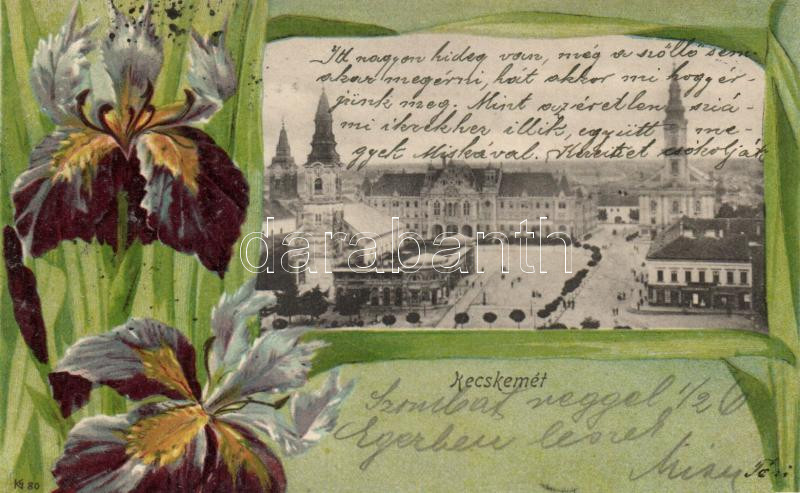 Itt nagyon hideg van, még a szőllő sem
akar megérni, hát akkor mi hogy ér-
jünk meg. Mint azéretlen sziá-
mi ikrekhez illik, együtt me-
gyek Miskával. Kezeitet csókolják
darabanth
Kecskemét
Szombat reggel 1/2 6
Egerben leszek
KG 80